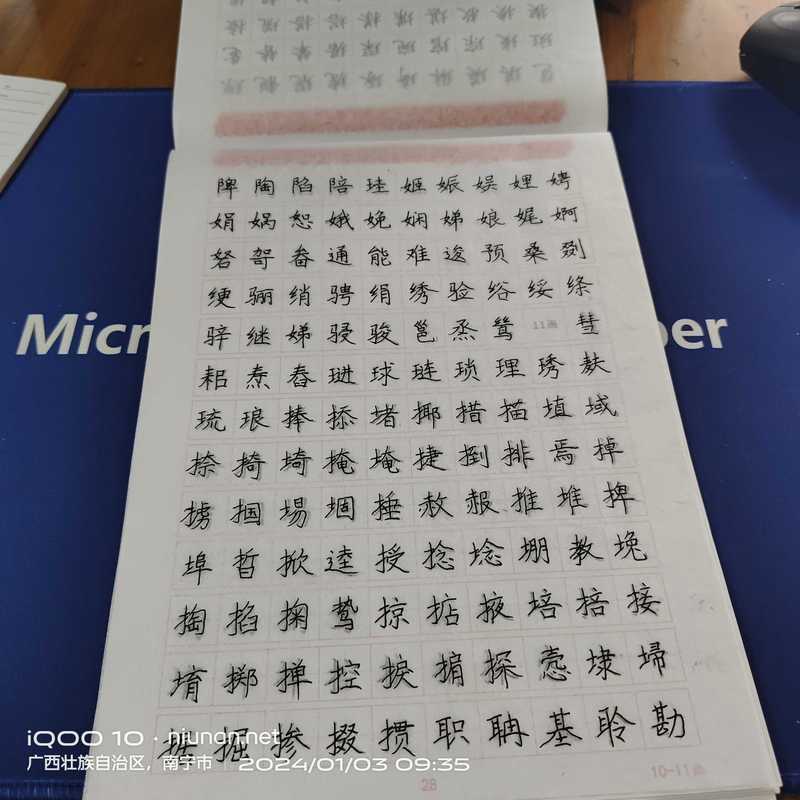 陴 陶 陷 陪 珪 姬 娠 娱 娌 娉
娟 娲 恕 娥 娩 娴 娣 娘 娓 婀
砮 哿 畚 通 能 难 逡 预 桑 剟
绠 骊 绡 骋 绢 绣 验 绤 绥 绦
骍 继 娣 骎 骏 邕 烝 鸶 11画 彗
耜 焘 舂 琎 球 琏 琐 理 琇 麸
琉 琅 捧 掭 堵 揶 措 描 埴 域
捺 掎 埼 掩 埯 捷 捯 排 焉 掉
掳 掴 埸 堌 捶 赦 赧 推 堆 捭
埠 晢 掀 逵 授 捻 埝 堋 教 堍
掏 掐 掬 鸷 掠 掂 掖 培 掊 接
堉 掷 掸 控 捩 掮 探 悫 埭 埽
据 掘 掺 掇 掼 职 聃 基 聆 勘
28 10-11画
Micr per
iQOO 10 · njunan.net
广西壮族自治区,南宁市 2024/01/03 09:35